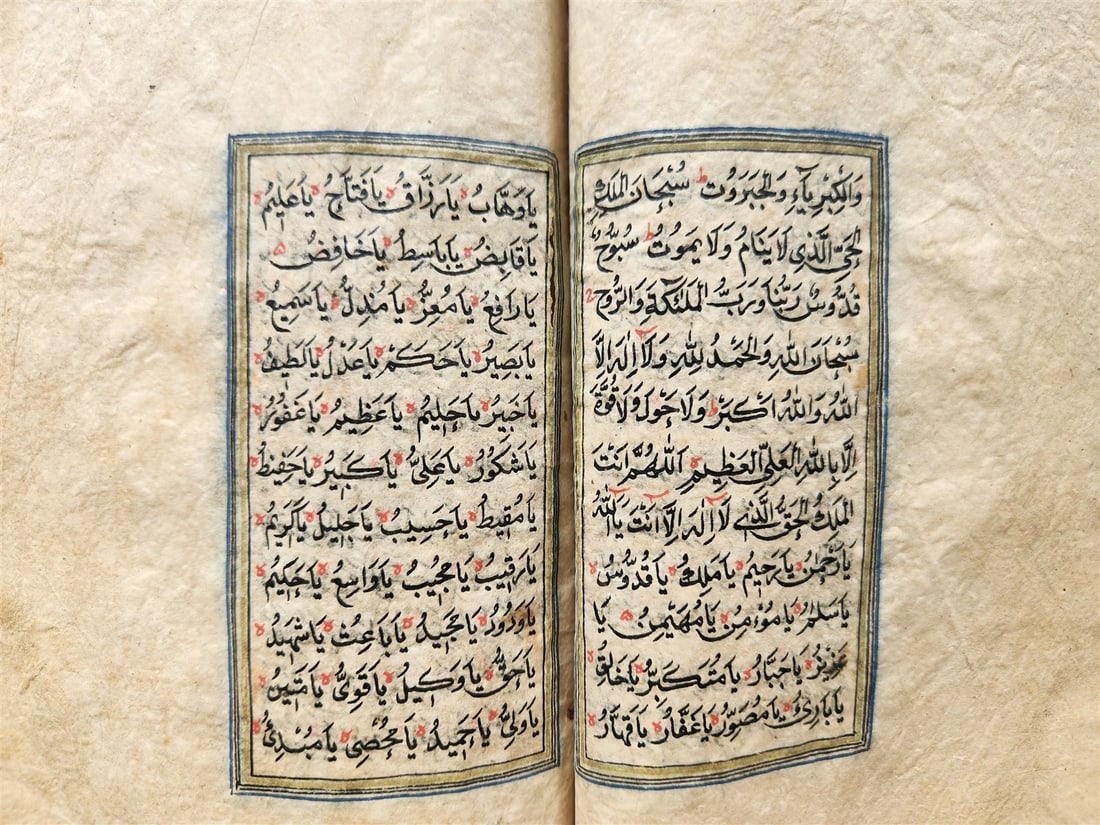 وَالْكِبْرِيَآءِ وَالْجَبَرُوتِ ط سُبْحَانَ الْمَلِكِ
الْحَىِّ الَّذِى لَا يَنَامُ وَلَا يَمُوتُ ط سُبُّوحٌ
قُدُّوسٌ رَبُّنَا وَرَبُّ الْمَلٰئِكَةِ وَالرُّوحِ
سُبْحَانَ اللّٰهِ وَالْحَمْدُ لِلّٰهِ وَلَا اِلٰهَ اِلَّا
اللّٰهُ وَاللّٰهُ اَكْبَرُ ط وَلَا حَوْلَ وَلَا قُوَّةَ
اِلَّا بِاللّٰهِ الْعَلِىِّ الْعَظِيمِ اَللّٰهُمَّ اَنْتَ
الْمَلِكُ الْحَقُّ الَّذِى لَا اِلٰهَ اِلَّا اَنْتَ يَا اَللّٰهُ
يَا رَحْمٰنُ يَا رَحِيمُ يَا مَلِكُ يَا قُدُّوسُ
يَا سَلٰمُ يَا مُؤْمِنُ يَا مُهَيْمِنُ يَا
عَزِيزُ يَا جَبَّارُ يَا مُتَكَبِّرُ يَا خَالِقُ
يَا بَارِئُ يَا مُصَوِّرُ يَا غَفَّارُ يَا قَهَّارُ
يَا وَهَّابُ يَا رَزَّاقُ يَا فَتَّاحُ يَا عَلِيمُ
يَا قَابِضُ يَا بَاسِطُ يَا خَافِضُ
يَا رَافِعُ يَا مُعِزُّ يَا مُذِلُّ يَا سَمِيعُ
يَا بَصِيرُ يَا حَكَمُ يَا عَدْلُ يَا لَطِيفُ
يَا خَبِيرُ يَا حَلِيمُ يَا عَظِيمُ يَا غَفُورُ
يَا شَكُورُ يَا عَلِىُّ يَا كَبِيرُ يَا حَفِيظُ
يَا مُقِيطُ يَا حَسِيبُ يَا جَلِيلُ يَا كَرِيمُ
يَا رَقِيبُ يَا مُجِيبُ يَا وَاسِعُ يَا حَكِيمُ
يَا وَدُودُ يَا مَجِيدُ يَا بَاعِثُ يَا شَهِيدُ
يَا حَقُّ يَا وَكِيلُ يَا قَوِىُّ يَا مَتِينُ
يَا وَلِىُّ يَا حَمِيدُ يَا مُحْصِى يَا مُبْدِئُ